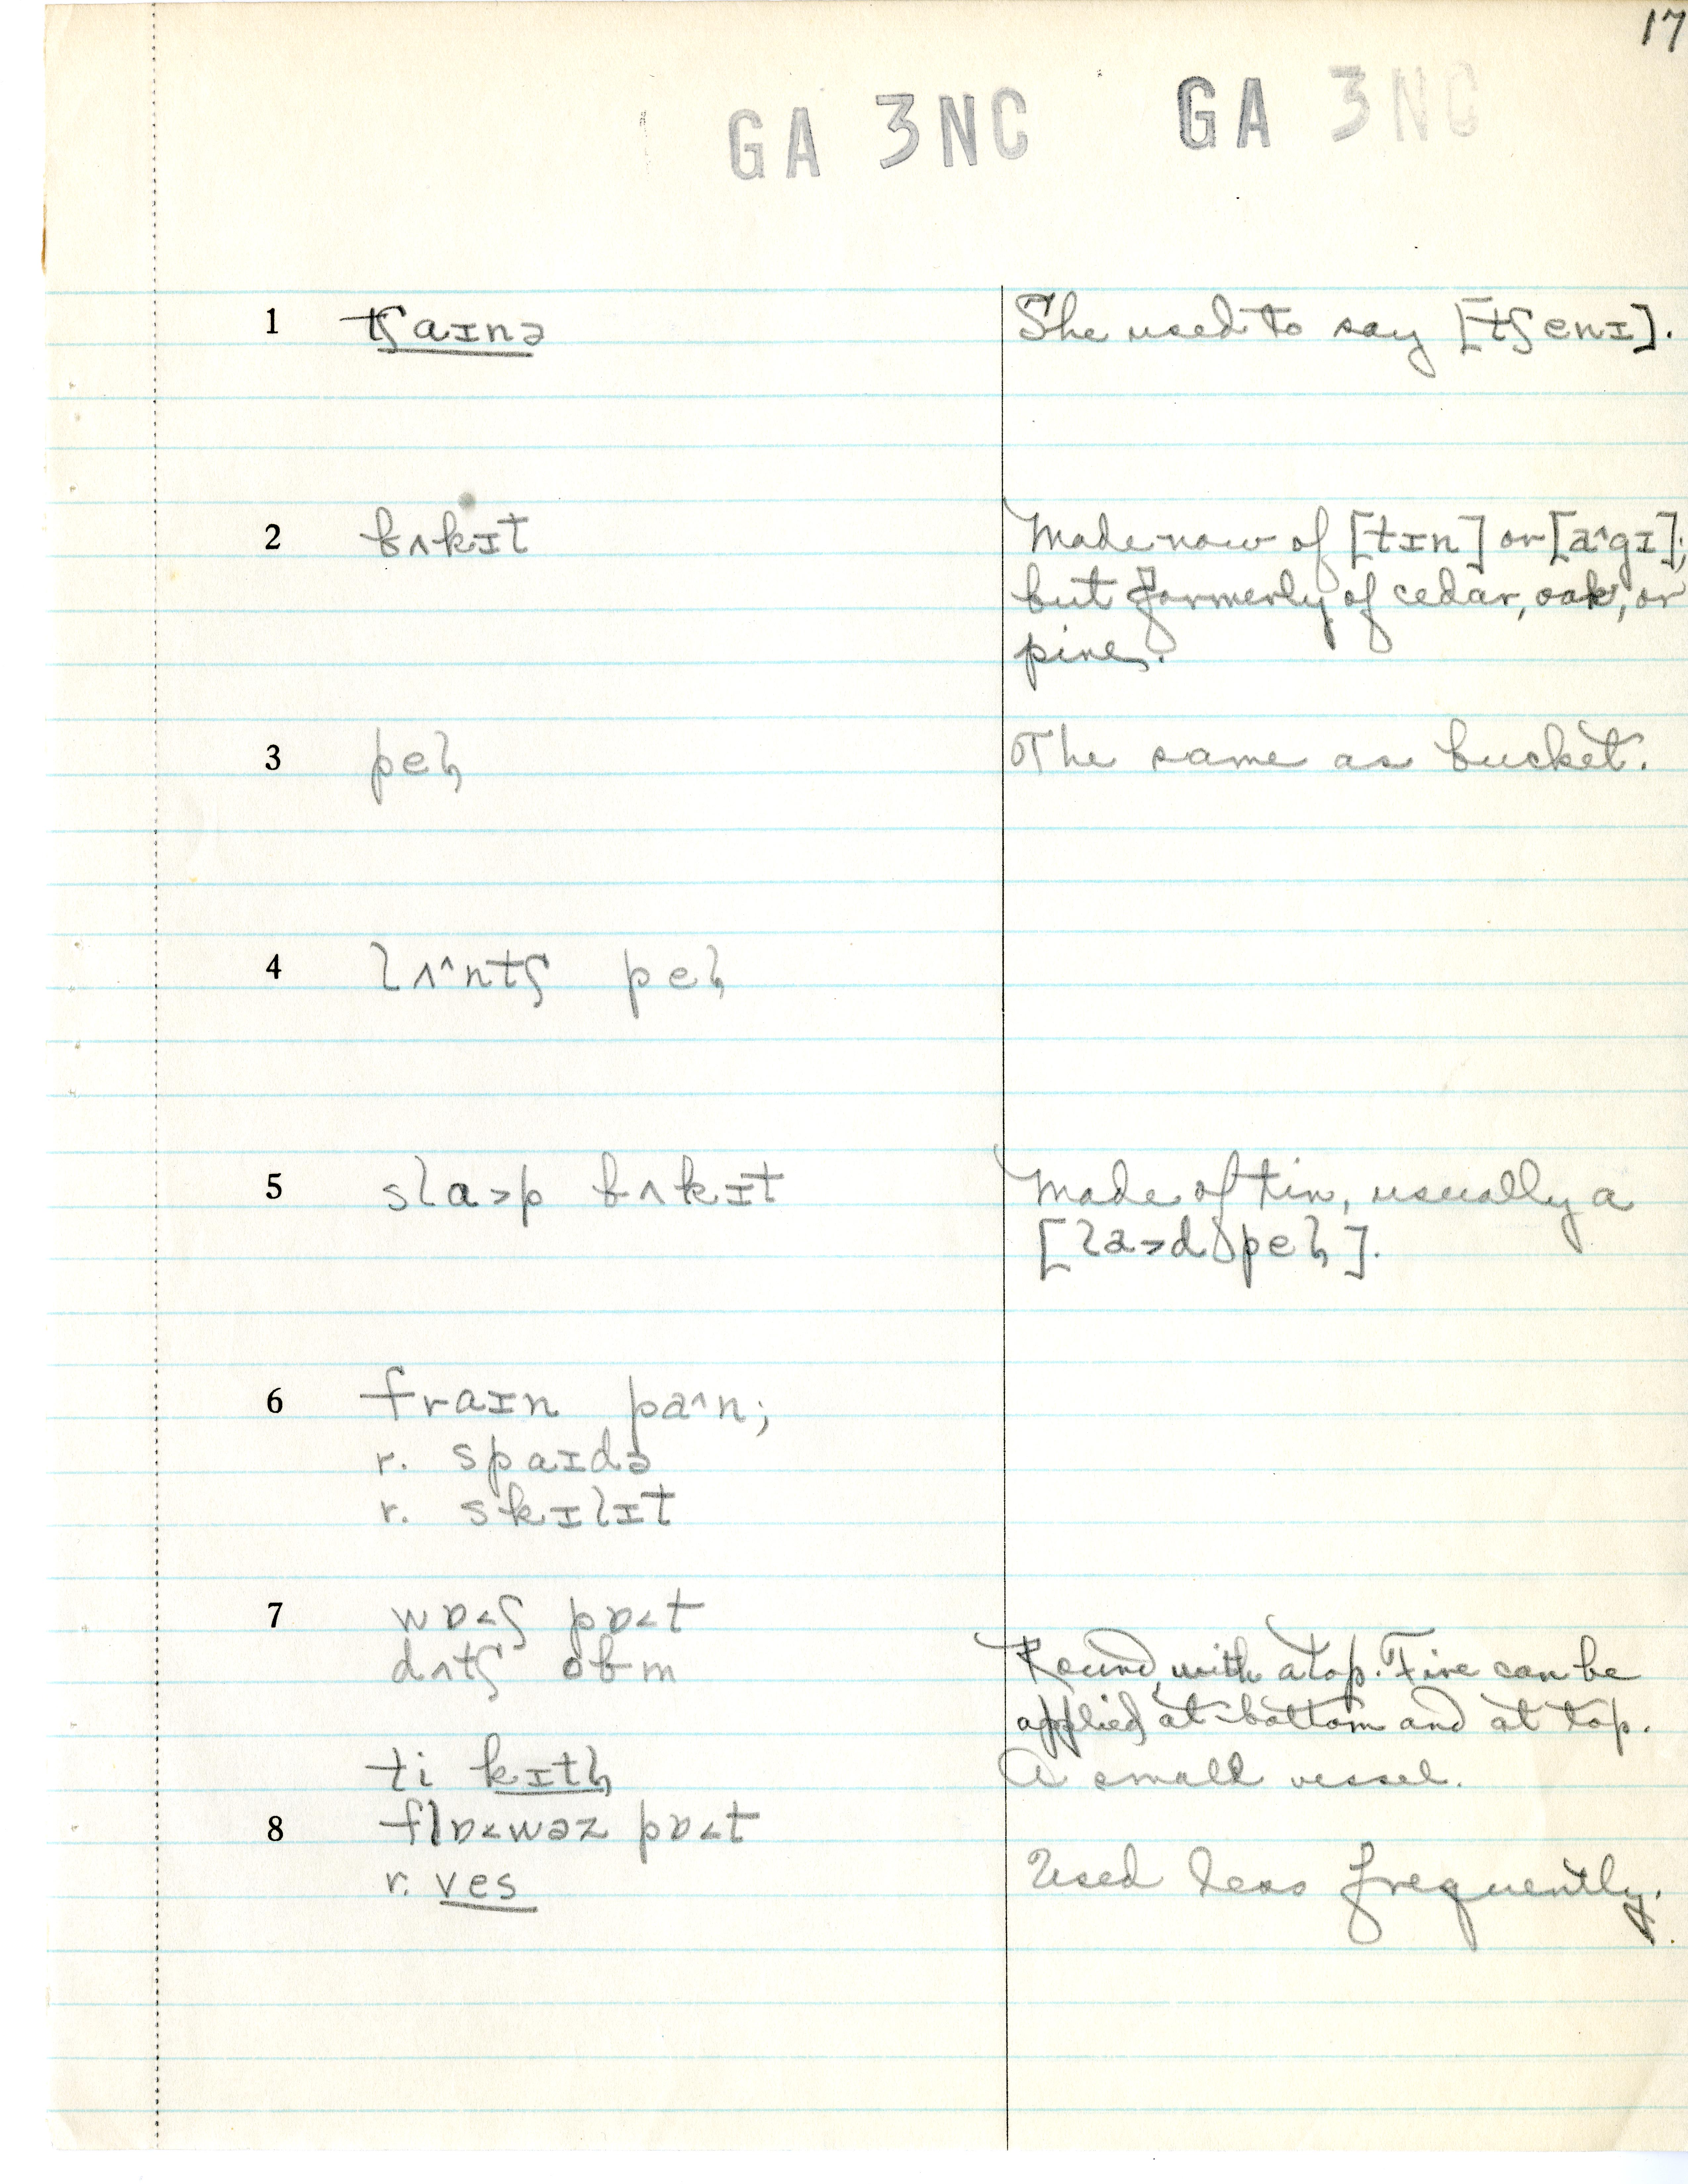 17
GA 3NC GA 3NC
1 tʃaɪnə She used to say [tʃenɪ].
2 bʌkɪt Made now of [tɪn] or [a^gɪ];
but formerly of cedar, oak, or
pine.
3 peɫ̩ The same as bucket.
4 lʌ^ntʃ peɫ̩
5 sla>p bʌkɪt Made of tin, usually a
[la>d peɫ̩].
6 fraɪn pa^n;
r. spaɪdə
r. skɪlɪt
7 wɒ<ʃ pɒ<t
dʌtʃ obm Round, with a top. Fire can be
applied at bottom and at top.
ti kɪtɫ̩ A small vessel.
8 flɒ<wəz pɒ<t
r. ves Used less frequently.